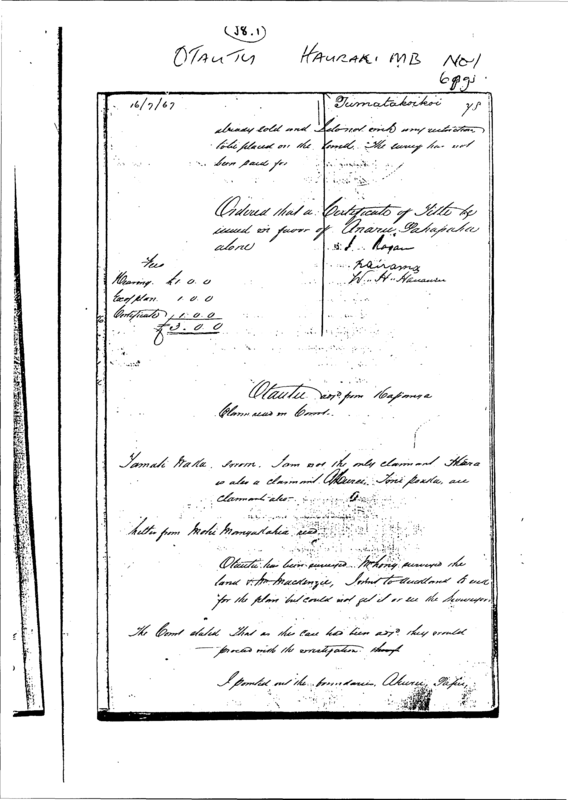 (J8.1)
OTAUTU HAURAKI MB No 1
6pgs.
16/7/67 Tumatakoikoi 78
already sold and I do not wish any restriction
to be placed on the land. The survey has not
been paid for
Ordered that a Certificate of Title be
issued in favor of
alone J. Rogan
Fees
W. H.
Hearing £1.0.0
Exg plan 1.0.0
Certificate 1.0.0
£3.0.0
Otautu adjd from Kapanga
Claim read in Court.
Tamati Waka sworn. I am not the only claimant
is also a claimant Akuru. are
claimants also
Letter from Mohi Mangakahia read
Otautu has been surveyed. surveyed the
land & Mr Mackenzie, I went to Auckland to
for the plan but could not get it or see the Surveyor.
The Court stated that as this case had been adjd they would
proceed with the investigation though
I pointed out the boundaries, Akuru,